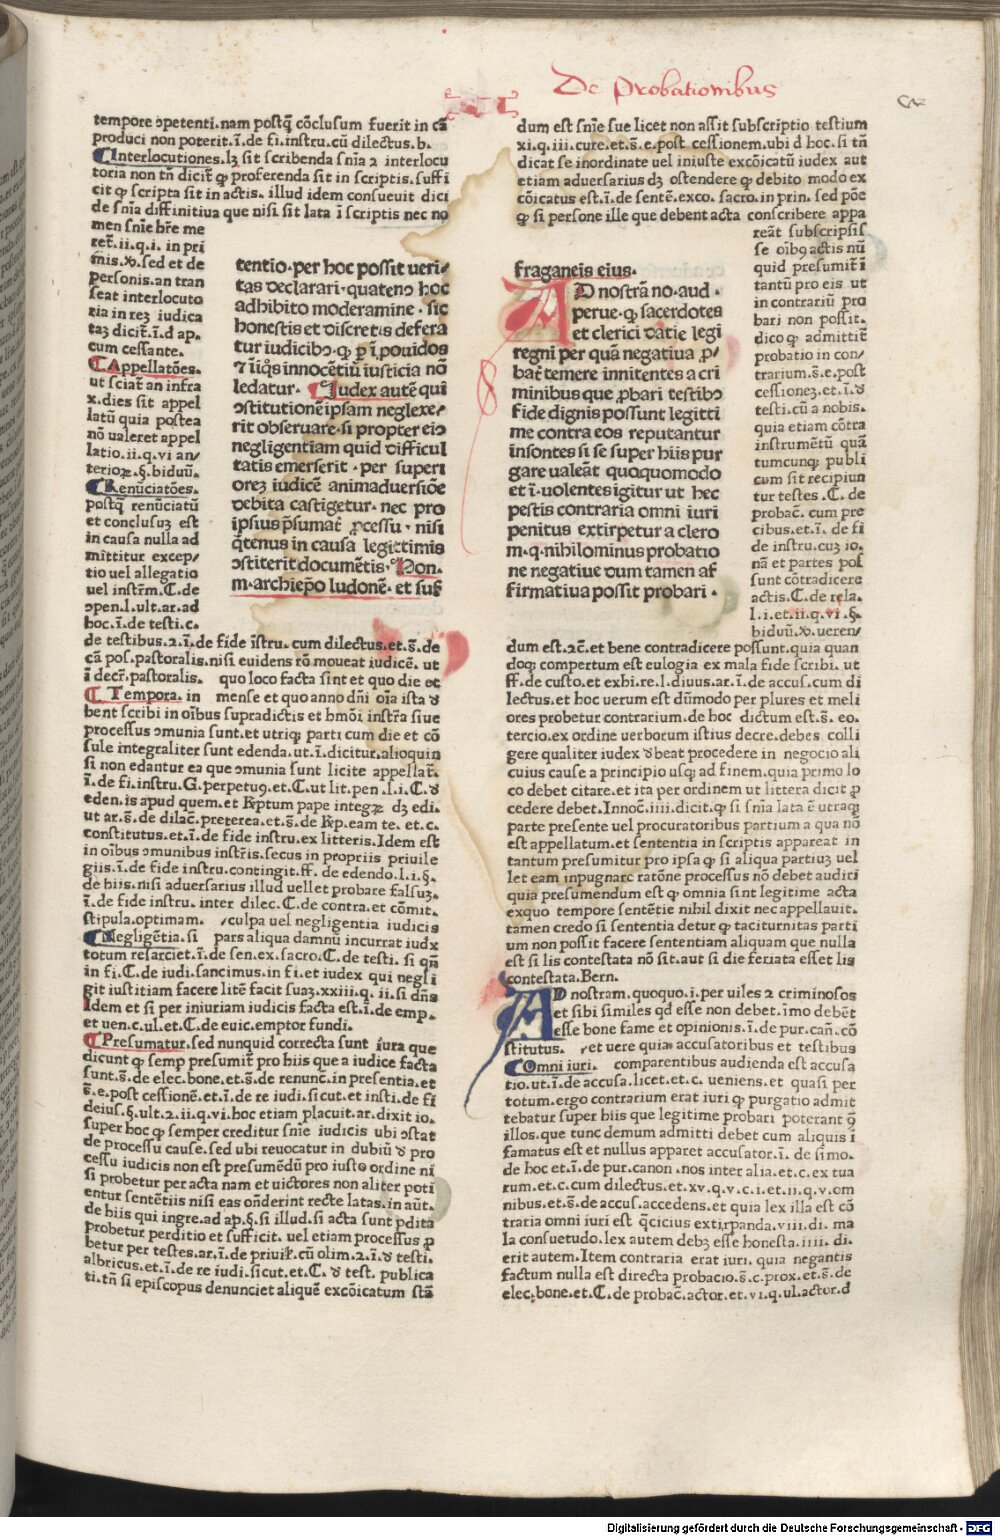 De Probationibus
tempore ɔpetenti.nam postq̄ cōclusum fuerit in cā
produci non poterit.ī.de fi.instru.cū dilectus.b.
Interlocutiones.lꝫ sit scribenda snīa 2 interlocu
toria non tn̄ dicit̄ ꝙ proferenda sit in scriptis.suffi
cit ꝙ scripta sit in actis. illud idem consueuit dici
de snīa diffinitiua que nisi sit lata ī scriptis nec no
men snīe hr̄e me
ret̄.ii.q.i. in pri
mis.℣.sed et de
personis.an tran
seat interlocuto
ria in reꝫ iudica
taꝫ dicit̄.ī.d ap.
cum cessante.
Appellatōes.
ut sciat̄ an infra
x.dies sit appel
latū quia postea
nō ualeret appel
latio.ii.q.vi an/
terioꝝ.§.biduū.
Renūciatōes.
postq̄ renūciatū
et conclusuꝫ est
in causa nulla ad
mīttitur excep/
tio uel allegatio
uel instrm̄.C.de
ɔpen.l.ult.ar.ad
hoc.ī.de testi.c.
tentio.per hoc possit ueri/
tas declarari.quatenꝰ hoc
adhibito moderamine.sic
honestis et discretis defera
tur iudicibꝰ.ꝙ ꝑ ī,ꝓuidos
⁊ īiq̄s innocētiū iusticia nō
ledatur. Judex autē qui
ɔstitutionē ipsam neglexe/
rit obseruare.si propter eiꝰ
negligentiam quid difficul
tatis emerserit.per superi
oreꝫ iudicē animaduersiōe
debita castigetur.nec pro
ipsius p̄sumat̄ ꝓcessu.nisi
q̄tenus in causa legittimis
ɔstiterit documētis.Non.
m.archiep̄o ludonē.et suf
de testibus.2.ī.de fide īstru.cum dilectus.et.s̄.de
cā pos.pastoralis.nisi euidens rō moueat iudicē. ut
ī decr̄.pastoralis. quo loco facta sint et quo die et
Tempora. in mense et quo anno dn̄i oīa ista d
bent scribi in oībus supradictis et hmōi instrā siue
processus ɔmunia sunt.et utriqꝫ parti cum die et cō
sule integraliter sunt edenda.ut.ī.dicitur.alioquin
si non edantur ea que ɔmunia sunt licite appellat̄.
ī.de fi.instru.G.perpetuꝰ.et.C.ut lit.pen.l.i.C.d
eden.is apud quem.et R̄ptum pape integꝝ dꝫ edi.
ut ar.s̄.de dilac̄.preterea.et.s̄.de R̄p.eam te. et.c.
constitutus.et.ī.de fide instru.ex litteris.Idem est
in oībus ɔmunibus instr̄is.secus in propriis priuile
giis.ī.de fide instru.contingit.ff. de edendo.l.i.§.
de hiis.nisi aduersarius illud uellet probare falsuꝫ.
ī.de fide instru. inter dilec.C.de contra.et cōmit.
stipula.optimam. /culpa uel negligentia iudicis
Negligētia.si pars aliqua damnū incurrat iudx
totum resarciet.ī.de sen.ex.sacro.C.de testi. si qn̄
in fi.C.de iudi.sancimus.in fi.et iudex qui negli
git iustitiam facere litē facit suaꝫ.xxiii.q. ii.si dn̄s
Idem et si per iniuriam iudicis facta est.ī.de emp.
et uen.c.ul.et.C.de euic.emptor fundi.
Presumatur.sed nunquid correcta sunt iura que
dicunt ꝙ semp presumit̄ pro hiis que a iudice facta
sunt.s̄.de elec.bone.et.s̄.de renunc.in presentia.et
s̄.e.post cessionē.et.ī.de re iudi.sicut.et insti.de fi
deius.§.ult.2.ii.q.vi.hoc etiam placuit.ar.dixit io.
super hoc ꝙ semper creditur snīe iudicis ubi ɔstat
de processu cause.sed ubi reuocatur in dubiū d pro
cessu iudicis non est presumēdū pro iusto ordine ni
si probetur per acta nam et uictores non aliter poti
entur sentētiis nisi eas on̄derint recte latas.in aut̄.
de hiis qui ingre.ad ap.§.si illud.si acta sunt ꝑdita
probetur perditio et sufficit. uel etiam processus ꝑ
betur per testes.ar.ī.de priuił.cū olim.2.ī.d testi.
albricus.et.ī.de re iudi.sicut.et.C. d test. publica
ti.tn̄ si episcopus denunciet aliquē excōicatum stā
dum est snīe sue licet non assit subscriptio testium
xi.q.iii.cure.et.s̄.e.post cessionem.ubi d hoc.si tn̄
dicat se inordinate uel iniuste excōicatū iudex aut
etiam aduersarius dꝫ ostendere ꝙ debito modo ex
cōicatus est.ī.de sentē.exco. sacro.in prin. sed pōe
ꝙ si persone ille que debent acta conscribere appa
reāt subscripsis
se oībꝰ actis nū
quid presumit̄ ī
tantū pro eis ut
in contrariū pro
bari non possit.
dico ꝙ admittit̄
probatio in con/
trarium.s̄.e.post
cessioneꝫ.et.ī.d
testi.cū a nobis.
quia etiam cōtra
instrumētū quā
tumcunqꝫ publi
cum sit recipiun
tur testes .C. de
probac̄. cum pre
cibus.et.ī. de fi
de instru.cuꝫ io.
nā et partes pos
sunt cōtradicere
actis.C.de rela.
l.i.et.ii.q.vi.§.
biduū.℣.ueren/
fraganeis eius.
AD nostrā no.aud.
perue.ꝙ sacerdotes
et clerici dātie legi
regni per quā negatiua ꝓ/
bat̄ temere innitentes a cri
minibus que ꝓbari testibꝰ
fide dignis possunt legitti
me contra eos reputantur
insontes si se super hiis pur
gare ualeāt quoquomodo
et ī.uolentes igitur ut hec
pestis contraria omni iuri
penitus extirpetur a clero
m.q.nihilominus probatio
ne negatiue dum tamen af
firmatiua possit probari.
dum est.2c̄.et bene contradicere possunt.quia quan
doqꝫ compertum est eulogia ex mala fide scribi. ut
ff.de custo.et exhi.re.l.diuus.ar.ī.de accus.cum di
lectus.et hoc uerum est dūmodo per plures et meli
ores probetur contrarium.de hoc dictum est.s̄. eo.
tercio.ex ordine uerborum istius decre.debes colli
gere qualiter iudex dbeat procedere in negocio ali
cuius cause a principio usqꝫ ad finem.quia primo lo
co debet citare.et ita per ordinem ut littera dicit ꝓ
cedere debet.Innoc̄.iiii.dicit.ꝙ si snīa lata ē utraqꝫ
parte presente uel procuratoribus partium a qua nō
est appellatum.et sententia in scriptis appareat in
tantum presumitur pro ipsa ꝙ si aliqua partiuꝫ uel
let eam inpugnare ratōne processus nō debet audiri
quia presumendum est ꝙ omnia sint legitime acta
exquo tempore sentētie nihil dixit nec appellauit.
tamen credo si sententia detur ꝙ taciturnitas parti
um non possit facere sententiam aliquam que nulla
est si lis contestata nō sit.aut si die feriata esset lis
contestata.Bern.
AD nostram.quoquo.i.per uiles 2 criminosos
et sibi similes qd̄ esse non debet.īmo debēt
esse bone fame et opinionis.ī.de pur.can̄.cō
stitutus. /et uere quia accusatoribus et testibus
Omni iuri. comparentibus audienda est accusa
tio.ut.ī.de accusa.licet.et.c. ueniens.et quasi per
totum.ergo contrarium erat iuri ꝙ purgatio admit
tebatur super hiis que legitime probari poterant ꝯ
illos.que tunc demum admitti debet cum aliquis ī
famatus est et nullus apparet accusator.ī. de simo.
de hoc et.ī.de pur.canon.nos inter alia.et.c.ex tua
rum.et.c.cum dilectus.et.xv.q.v.c.i.et.ii.q.v.om
nibus.et.s̄.de accus.accedens.et quia lex illa est cō
traria omni iuri est q̄cicius extirpanda.viii.di. ma
la consuetudo.lex autem debꝫ esse honesta.iiii. di.
erit autem.Item contraria erat iuri. quia negantis
factum nulla est directa probacio.s̄.c.prox.et.s̄.de
elec.bone.et.C.de probac̄.actor.et.vi.q.ul.actor.d
Digitalisierung gefördert durch die Deutsche Forschungsgemeinschaft - DFG